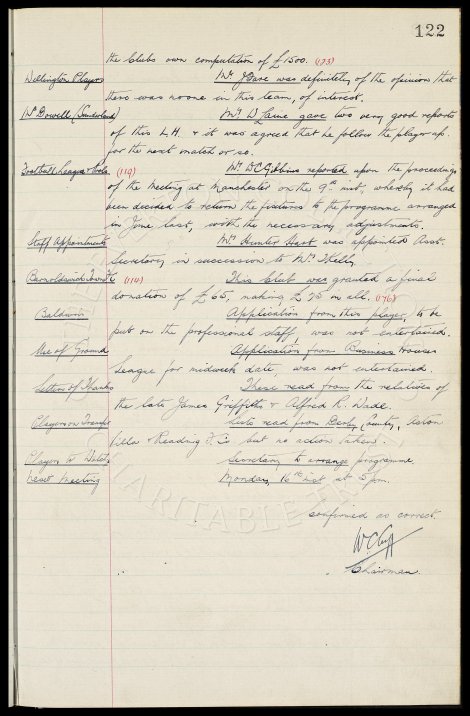 122
the Clubs own computation of £1500. (123)
Wellington Players Mr J Dave was definitely of the opinion that
there was no one in this team, of interest.
McDowell (Sunderland) Mr D Laurie gave two very good reports
of this L.H. & it was agreed that he follow the player up
for the next match or so.
Football League Meeting (119) Mr W C Gibbins reported upon the proceedings
of the Meeting at Manchester on the 9th inst, whereby it had
been decided to return the fixtures to the programme arranged
in June last, with the necessary adjustments.
Staff Appointments Mr Hunter Hart was appointed Asst.
Secretary in succession to Mr Kelly.
Barnoldswick Town F.C (114) This Club was granted a final
donation of £65, making £75 in all. (176)
Baldwin Application from this player, to be
put on the professional staff, was not entertained.
Use of Ground Application from Business Houses
League for midweek date, was not entertained.
Letters of Thanks These read from the relatives of
the late James Griffiths & Alfred R. Wade.
Players on Transfer Lists read from Derby County, Aston
Villa & Reading F.Cs but no action taken.
Players to Watch Secretary to arrange programme.
Next Meeting Monday 16th inst at 5 pm.
confirmed as correct.
W C Cuff
Chairman
CHARITABLE TRUST